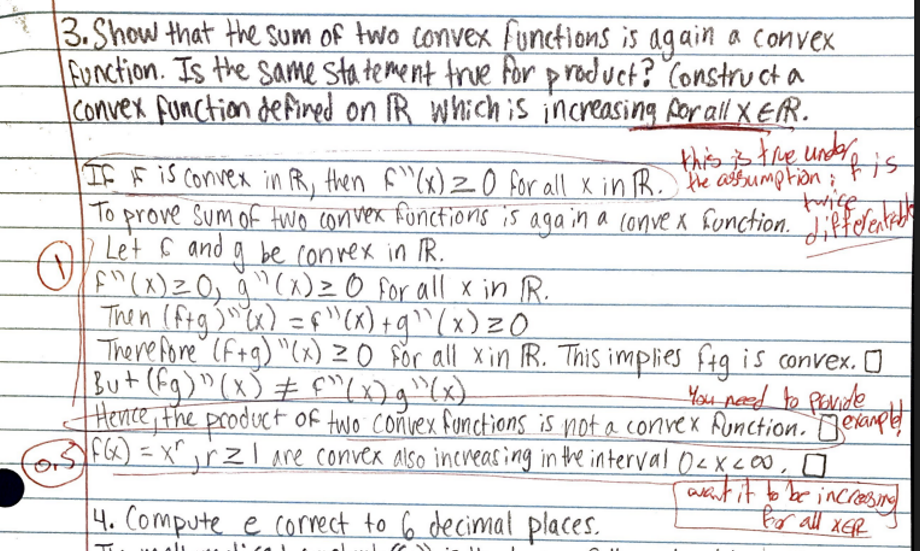 3. Show that the sum of two convex functions is again a convex
function. Is the same statement true for product? Construct a
convex function defined on ℝ which is increasing for all x∈ℝ.
this is true under
the assumption: f is
twice
differentiable
If f is convex in ℝ, then f''(x) ≥ 0 for all x in ℝ.
To prove sum of two convex functions is again a convex function.
Let f and g be convex in ℝ.
①
f''(x) ≥ 0, g''(x) ≥ 0 for all x in ℝ.
Then (f+g)''(x) = f''(x) + g''(x) ≥ 0
Therefore (f+g)''(x) ≥ 0 for all x in ℝ. This implies f+g is convex. □
But (fg)''(x) ≠ f''(x) g''(x)
You need to provide
example!
Hence, the product of two convex functions is not a convex function. □
0.5
f(x) = xʳ, r ≥ 1 are convex also increasing in the interval 0 < x < ∞. □
want it to be increasing
for all x∈ℝ
4. Compute e correct to 6 decimal places.